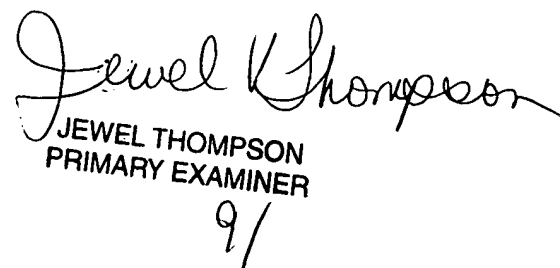 Jewel V Thompson
JEWEL THOMPSON
PRIMARY EXAMINER
9/